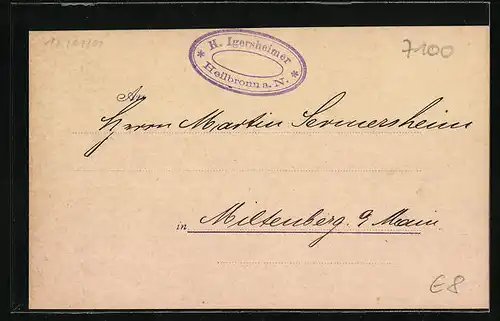 * H. Igersheimer *
Heilbronn a. N.
7100
An
Herrn Martin Sermersheim
in Miltenberg a Main
€8